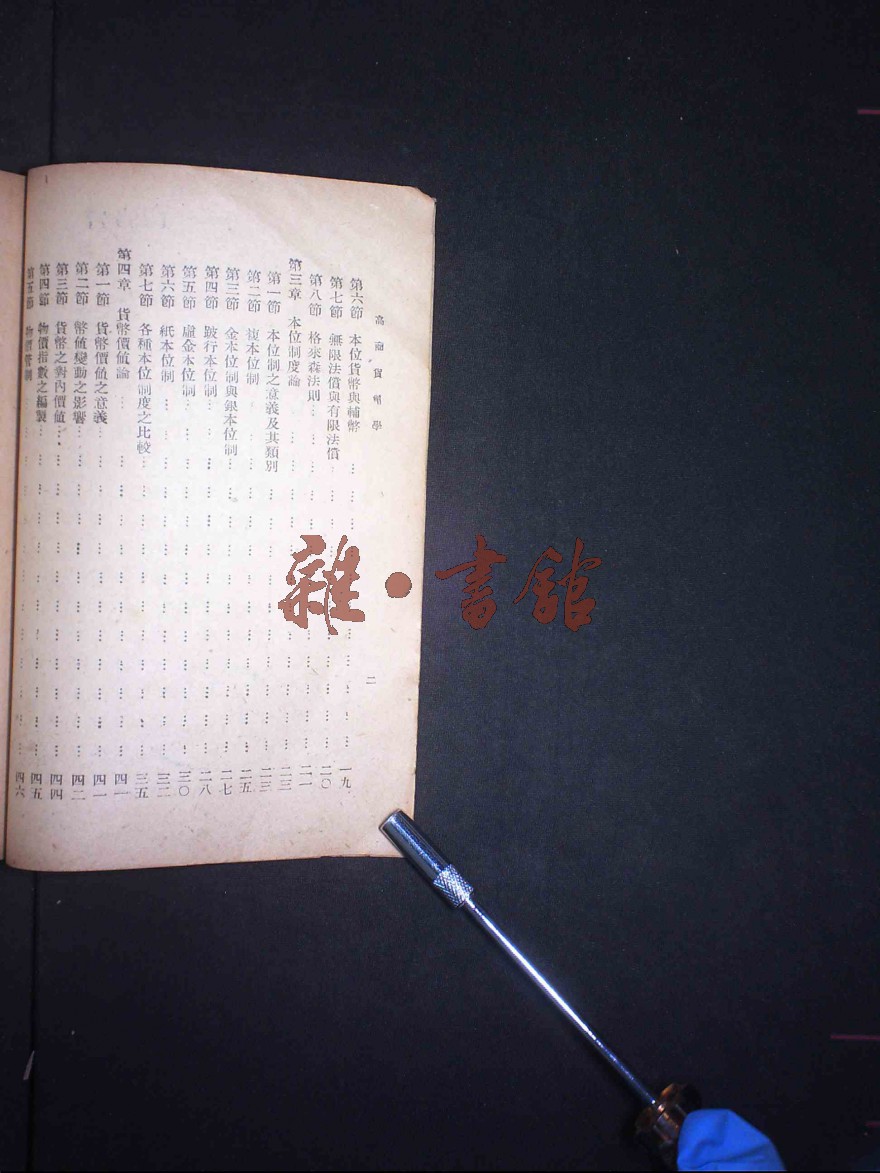 高商貨幣學
二
第六節 本位貨幣與輔幣 一九
第七節 無限法償與有限法償 二〇
第八節 格來森法則 二一
第三章 本位制度論 二三
第一節 本位制之意義及其類別 二三
第二節 複本位制 二五
第三節 金本位制與銀本位制 二七
第四節 跛行本位制 二八
第五節 虛金本位制 三〇
第六節 紙本位制 三二
第七節 各種本位制度之比較 三五
第四章 貨幣價值論 四一
第一節 貨幣價值之意義 四一
第二節 幣值變動之影響 四二
第三節 貨幣之對內價值 四四
第四節 物價指數之編製 四五
第五節 物價管制 四六
雜·書館